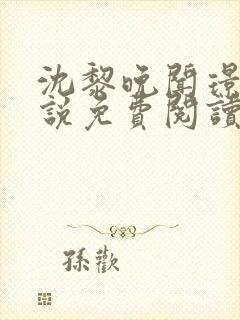 沈黎晚聞璟
說免費閱讀
孫歡